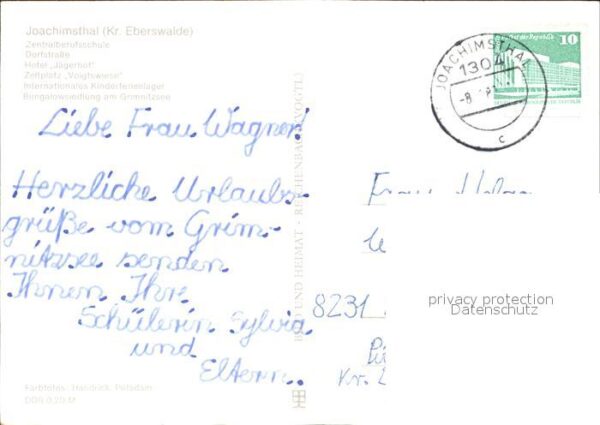 Joachimsthal (Kr. Eberswalde)
Zentralberufsschule
Dorfstraße
Hotel „Jägerhof"
Zeltplatz „Voigtswiese"
Internationales Kinderferienlager
Bungalowsiedlung am Grimnitzsee
Liebe Frau Wagner!
Herzliche Urlaubs-
grüße vom Grim-
nitzsee senden
Ihnen Ihre
Schülerin Sylvia
und
Eltern.
Farbfotos: Handrick, Potsdam
DDR 0,20 M
BILD UND HEIMAT - REICHENBACH (VOGTL)
JOACHIMSTHAL
1304
-8.
c
der Republik
10
Frau
8231
Kr.
privacy protection
Datenschutz